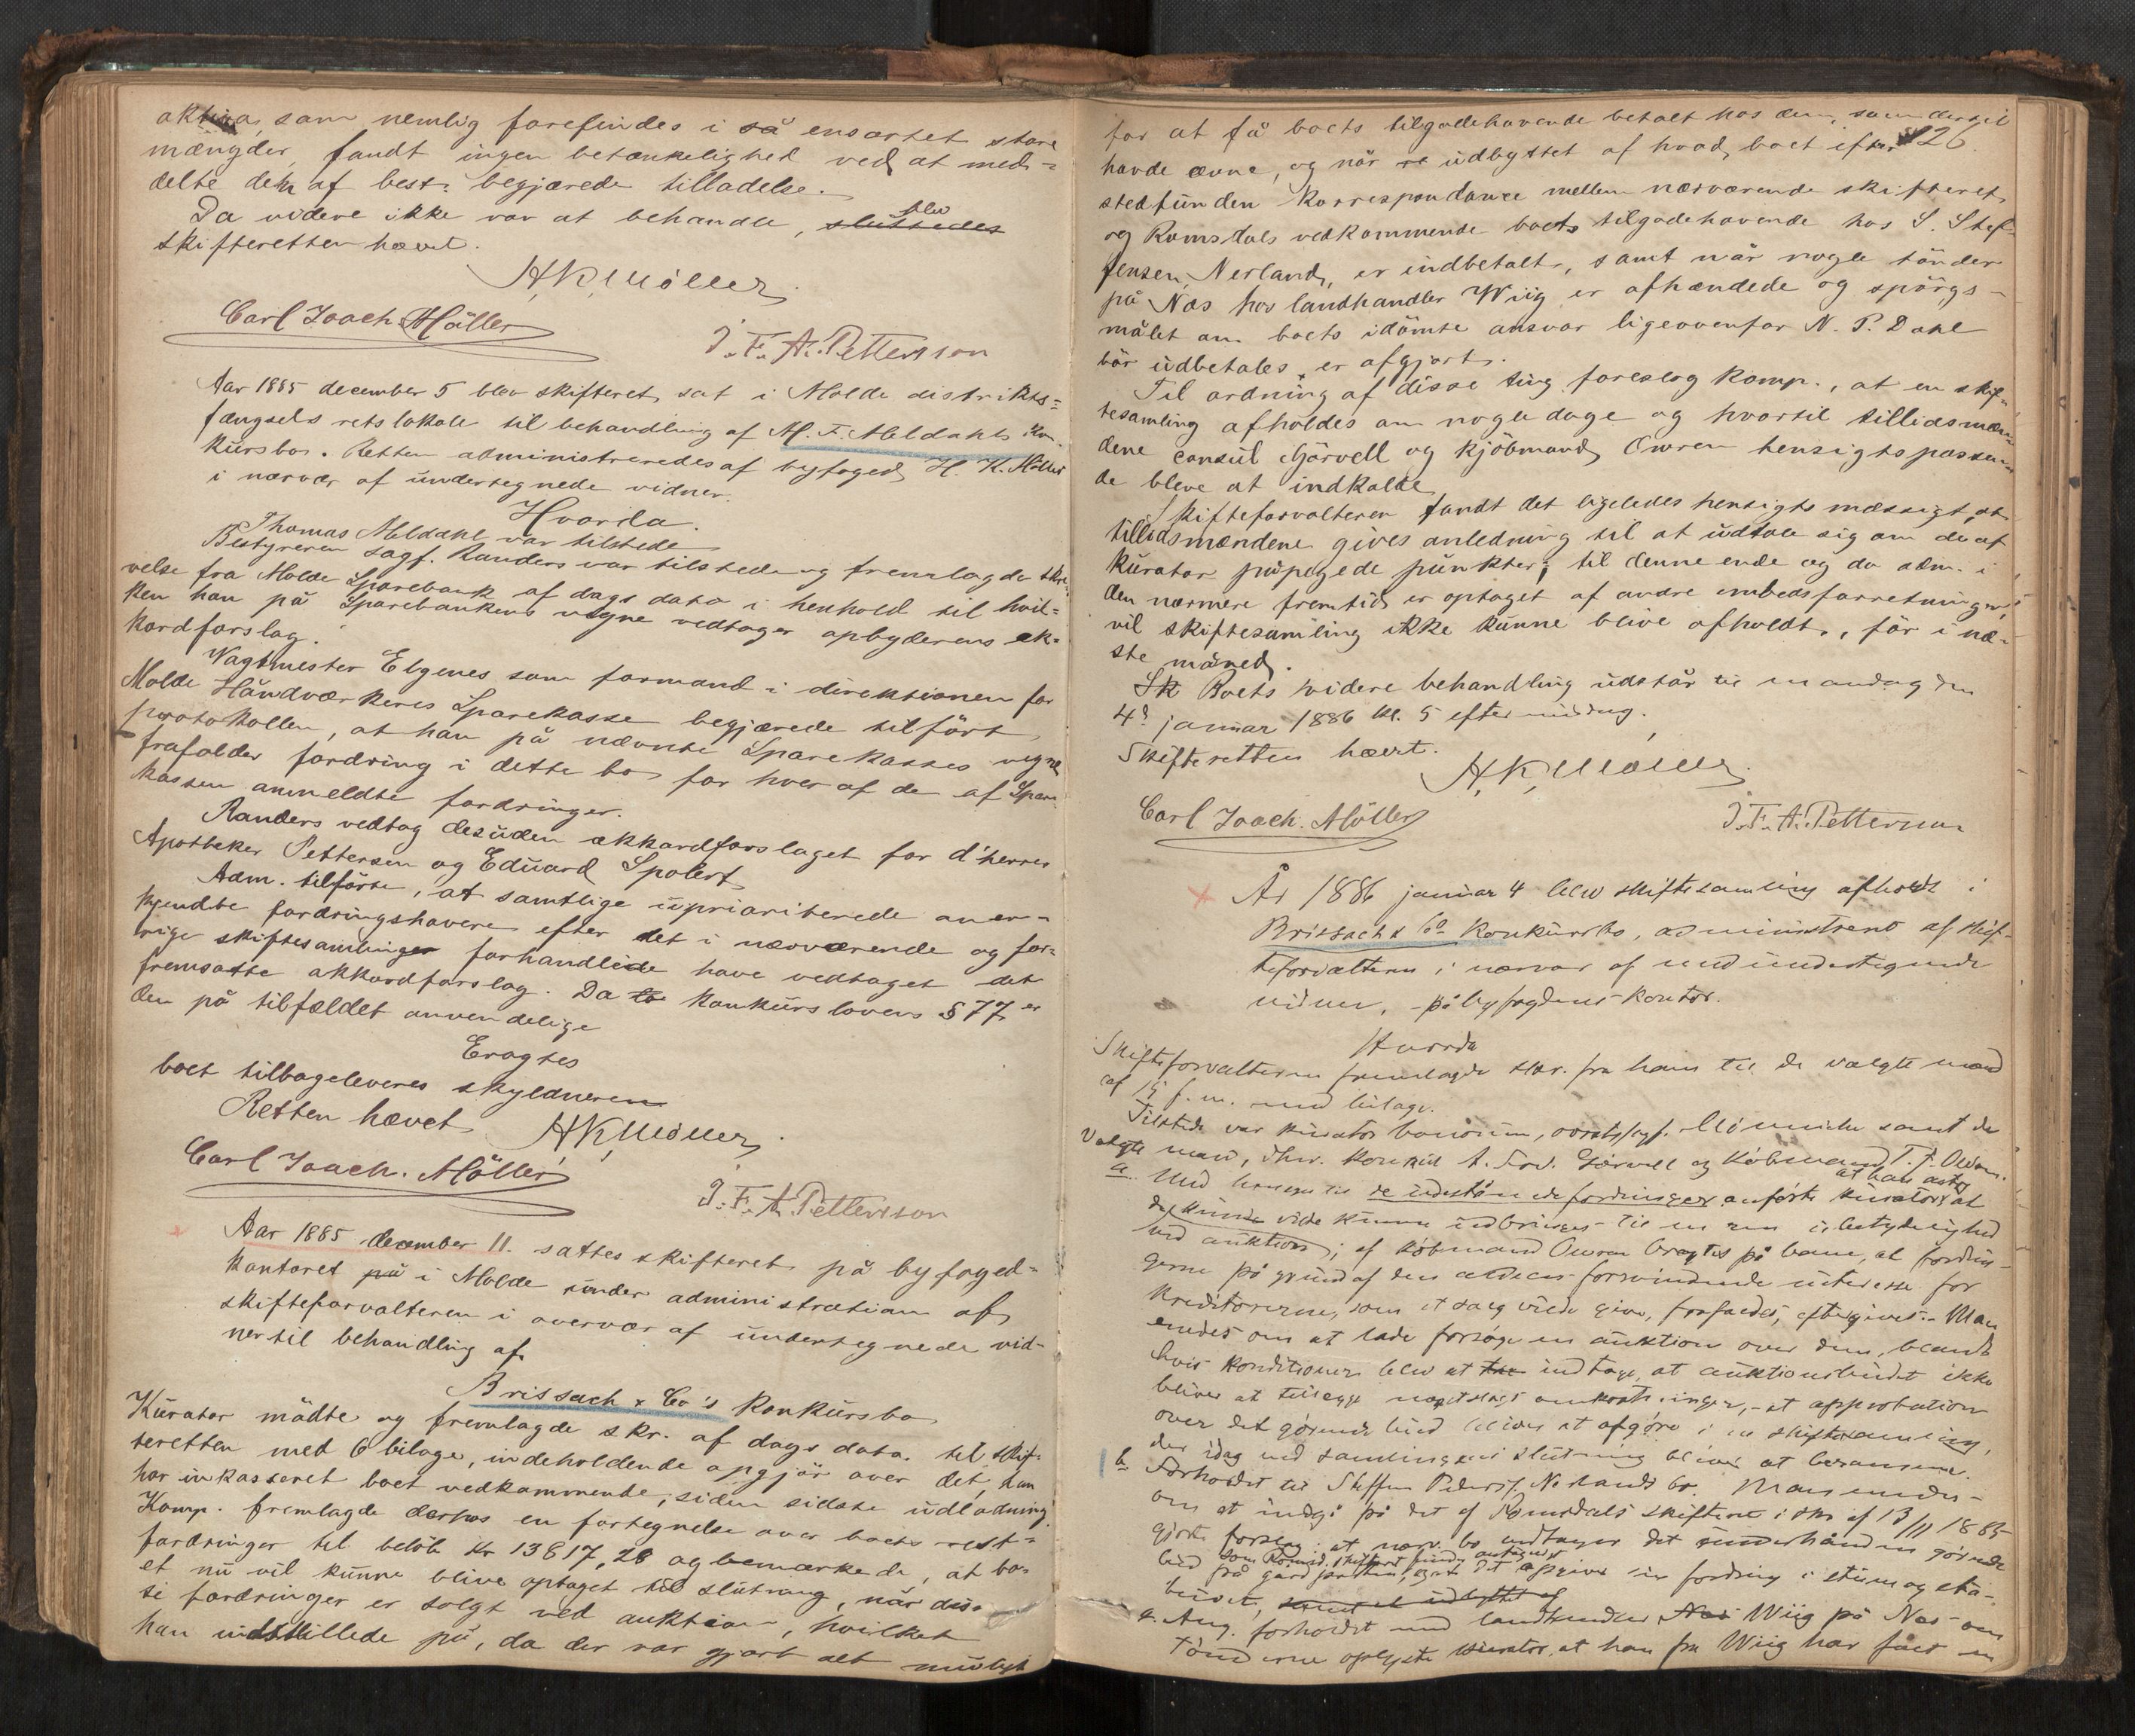 aktiva, som nemlig forefindes i så ensartet store
mængder, fandt ingen betænkelighed ved at med-
delte den af best. begjærede tilladelse.
Da videre ikke var at behandle, sluttedes blev
skifteretten hævet.
H.K. Möller
Carl Joach. Möller
J. F. A. Pettersson
Aar 1885 december 5 blev skifteret sat i Molde distrikts-
fængsels retslokale til behandling af M. F. Meldahls kon-
kursbo. Retten administreredes af byfoged H. K. Möller
i nærvær af undertegnede vidner.
Hvorda.
Thomas Meldahl var tilstede
Bestyreren sagf. Randers var tilstede og fremlagde skri-
velse fra Molde Sparebank af dags dato i henhold til hvil-
ken han på Sparebankens vegne vedtager opbyderens ak-
kordforslag.
Vagtmester Elgenes som formand i direktionen for
Molde Håndværkeres Sparekasse begjærede tilført
protokollen, at han på nævnte Sparekasses vegne
frafalder fordring i dette bo for hver af de af Spare-
kassen anmeldte fordringer.
Randers vedtog desuden akkordforslaget for d'herrer
Apotheker Pettersen og Eduard Spolert
Adm. tilførte, at samtlige upriariterede aner-
kjendte fordringshavere efter det i nærværende og for-
rige skiftesamlinger forhandlede have vedtaget det
fremsatte akkordforslag. Da konkurslovens § 77 er
den på tilfældet anvendelige
Eragtes
boet tilbageleveres skyldneren
Retten hævet
H.K. Möller
Carl Joach. Möller
J. F. A. Pettersson
Aar 1885 december 11. sattes skifteret på byfoged-
kontoret på i Molde under administration af
skifteforvalteren i overvær af undertegnede vid-
ner til behandling af
Brissach & Co's konkursbo
Kurator mødte og fremlagde skr. af dags dato til skif-
teretten med 6 bilage, indeholdende opgjør over det, han
har inkasseret boet vedkommende, siden sidste udlodning.
Komp. fremlagde derhos en fortegnelse over boets rest-
fordringer til beløb kr 13817,28 og bemærkede, at bo-
et nu vil kunne blive optaget til slutning, når dis-
se fordringer er solgt ved auktion, hvilket
han indstillede på, da der var gjort alt muligt
126.
for at få boets tilgodehavende betalt hos dem, som dertil
havde ævne, og når udbyttet af hvad boet efter
stedfunden korrespondance mellem nærværende skifteret
og Romsdals vedkommende boets tilgodehavende hos S. Stef-
fensen, Nerland, er indbetalt, samt når nogle tönder
på Næs hos landhandler Wiig er afhændede og spörgs-
målet om boets idömte ansvar ligeovenfor N. P. Dahl
bör udbetales, er afgjort.
Til ordning af disse ting foreslog komp., at en skif-
tesamling afholdes om nogle dage og hvortil tillidsmæn-
dene consul Gjörvell og kjöbmand Owren hensigtspassen-
de bleve at indkalde
Skifteforvalteren fandt det ligeledes hensigtsmæssigt, at
tillidsmændene gives anledning til at udtale sig om de af
kurator påpegede punkter; til denne ende og da adm. i
den nærmere fremtid er optaget af andre embedsforretninger,
vil skiftesamling ikke kunne blive afholdt, för i næ-
ste måned.
Sk Boets videre behandling udstår til mandag den
4de januar 1886 kl. 5 eftermiddag.
Skifteretten hævet.
H.K. Möller
Carl Joach. Möller
J. F. A. Pettersson
År 1886 januar 4 blev skiftesamling afholdt i
Brissach & Co konkursbo, administreret af skif-
teforvalteren i nærvær af med undertegnede
vidner, på byfogdens kontor.
Hvorda
Skifteforvalteren fremlagde skr. fra ham til de valgte mænd
af 15 f. m. med bilage.
Tilstede var kurator bonorum, sagf. samt de
valgte mænd, dhrr. konsul A. Gørvell og köbmand
a. Med hensyn til de udestående fordringer anførte kurator, at
at han antog
vilde kunne indbringes til en ren ubetydelighed
ved auktion; af købmand Owren bragtes på bane, at fordrin-
gerne på grund af den aldeles forsvindende interesse for
kreditorerne, som et salg vilde give, frafaldes, eftergives. Man
enedes om at lade forsøge en auktion over dem, blandt
hvis konditioner blev at indtage, at auktionsbudet ikke
bliver at tillægge noget slags omkostninger, at approbation
over det gjørende bud bliver at afgøre i en skiftesamling,
der idag ved samlingens slutning bliver at berammes.
b. Forholdet til Steffen Peders. Nerlands bo. Man enedes
om at indgå på det af Romsdals skifteret i skr af 13/11 1885
gjorte forslag: at nærv. bo vedtager det underhånden gjørende
som Romsd. skifteret finder antageligt
bud på gård, og at det opgiver sin fordring i
samt et udbyttet af
c. Ang. forholdet med landhandler Wiig på Næs om
tønderne oplyste kurator, at han fra Wiig har fået en